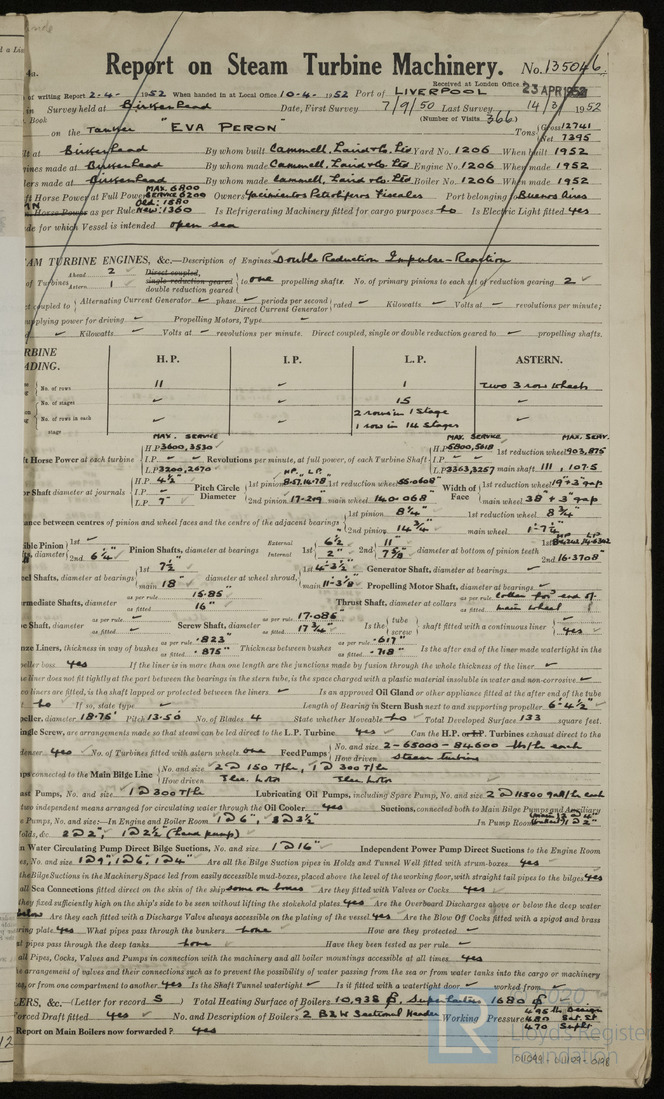 Report on Steam Turbine Machinery. No. 135046
Received at London Office 23 APR 1952
of writing Report 2-4- 1952 When handed in at Local Office 10-4-1952 Port of LIVERPOOL
in Survey held at Birkenhead Date, First Survey 7/9/50 Last Survey 14/3/1952
Book (Number of Visits 366)
on the Tanker "EVA PERON" Tons Gross 12741 Net 7395
Birkenhead By whom built Cammell, Laird & Co. Ltd Yard No. 1206 When built 1952
made at Birkenhead By whom made Cammell, Laird & Co. Ltd Engine No. 1206 When made 1952
made at Birkenhead By whom made Cammell, Laird & Co. Ltd Boiler No. 1206 When made 1952
Horse Power at Full Power MAX. 6800 SERVICE 6200 Owners Yacimientos Petroliferos Fiscales Port belonging to Buenos Aires
Horse Power as per Rule Old: 1580 New: 1360 Is Refrigerating Machinery fitted for cargo purposes No Is Electric Light fitted Yes
for which Vessel is intended open sea
AM TURBINE ENGINES, &c.—Description of Engines Double Reduction Impulse-Reaction
of Turbines Ahead 2 Astern 1 Direct coupled, single reduction geared double reduction geared to one propelling shafts. No. of primary pinions to each set of reduction gearing 2
coupled to Alternating Current Generator phase periods per second Direct Current Generator rated Kilowatts Volts at revolutions per minute;
supplying power for driving Propelling Motors, Type
Kilowatts Volts at revolutions per minute. Direct coupled, single or double reduction geared to propelling shafts.
H.P. I.P. L.P. ASTERN.
No. of rows 11 1 two 3 row wheels
No. of stages 15
No. of rows in each stage 2 rows in 1 stage 1 row in 14 stages
MAX. SERVICE MAX. SERVICE MAX. SERV.
Horse Power at each turbine H.P. 3600, 3530 I.P. L.P. 3200, 2670 Revolutions per minute, at full power, of each Turbine Shaft H.P. 5800, 5618 I.P. L.P. 3363, 3257 1st reduction wheel 903, 875 main shaft 111, 107.5
Shaft diameter at journals H.P. 4½" I.P. L.P. 7" Pitch Circle Diameter 1st pinion 1st reduction wheel 55.0608" 2nd pinion 17.209 main wheel 140.068 Width of Face 1st reduction wheel 19"+3" gap main wheel 38"+3" gap
between centres of pinion and wheel faces and the centre of the adjacent bearings 1st pinion 8¼" 2nd pinion 14¾" 1st reduction wheel 8¾" main wheel 1'-7¼"
Pinion 1st 2nd 6¼" Pinion Shafts, diameter at bearings External 1st 6½ Internal 2" 2nd 11" 7⅝" diameter at bottom of pinion teeth 1st 2nd 16.3708"
Shafts, diameter at bearings 1st 7½ main 18" diameter at wheel shroud, 1st 4'-3½" main 11'-3⅛" Generator Shaft, diameter at bearings Propelling Motor Shaft, diameter at bearings
Shafts, diameter as per rule 15.85 as fitted 16" Thrust Shaft, diameter at collars as per rule collar for'd end of as fitted main wheel
Shaft, diameter as per rule as fitted Screw Shaft, diameter as per rule 17.086 as fitted 17¾" Is the tube screw shaft fitted with a continuous liner Yes
Liners, thickness in way of bushes as per rule .823" as fitted .875" Thickness between bushes as per rule .617" as fitted .718" Is the after end of the liner made watertight in the
propeller boss yes If the liner is in more than one length are the junctions made by fusion through the whole thickness of the liner
liner does not fit tightly at the part between the bearings in the stern tube, is the space charged with a plastic material insoluble in water and non-corrosive
two liners are fitted, is the shaft lapped or protected between the liners. Is an approved Oil Gland or other appliance fitted at the after end of the tube
No If so, state type Length of Bearing in Stern Bush next to and supporting propeller 6'-4½"
Propeller, diameter 18.75' Pitch 13.50 No. of Blades 4 State whether Moveable No Total Developed Surface 133 square feet.
Single Screw, are arrangements made so that steam can be led direct to the L.P. Turbine Yes Can the H.P. or I.P. Turbines exhaust direct to the
denser Yes No. of Turbines fitted with astern wheels one Feed Pumps No. and size 2-65000-84600 lbs/hr each How driven steam turbine
connected to the Main Bilge Line No. and size 2 @ 150 T/hr, 1 @ 300 T/hr How driven Elec. Motor Elec. Motor
Pumps, No. and size 1 @ 300 T/hr Lubricating Oil Pumps, including Spare Pump, No. and size 2 @ 11500 gall/hr each
two independent means arranged for circulating water through the Oil Cooler Yes Suctions, connected both to Main Bilge Pumps and Auxiliary
Pumps, No. and size:—In Engine and Boiler Room 1 @ 6", 3 @ 3½" In Pump Room
Holds, &c. 2 @ 2", 1 @ 2½ (hand pump)
Water Circulating Pump Direct Bilge Suctions, No. and size 1 @ 16" Independent Power Pump Direct Suctions to the Engine Room
No. and size 1 @ 9", 1 @ 6", 1 @ 4" Are all the Bilge Suction pipes in Holds and Tunnel Well fitted with strum-boxes Yes
the Bilge Suctions in the Machinery Space led from easily accessible mud-boxes, placed above the level of the working floor, with straight tail pipes to the bilges Yes
all Sea Connections fitted direct on the skin of the ship some on boxes Are they fitted with Valves or Cocks Yes
they fixed sufficiently high on the ship's side to be seen without lifting the stokehold plates Yes Are the Overboard Discharges above or below the deep water
below Are they each fitted with a Discharge Valve always accessible on the plating of the vessel Yes Are the Blow Off Cocks fitted with a spigot and brass
covering plate Yes What pipes pass through the bunkers None How are they protected
pipes pass through the deep tanks None Have they been tested as per rule
all Pipes, Cocks, Valves and Pumps in connection with the machinery and all boiler mountings accessible at all times Yes
arrangement of valves and their connections such as to prevent the possibility of water passing from the sea or from water tanks into the cargo or machinery
or from one compartment to another Yes Is the Shaft Tunnel watertight Is it fitted with a watertight door worked from
ERS, &c.—(Letter for record S) Total Heating Surface of Boilers 10,938 Superheater 1680
Forced Draft fitted Yes No. and Description of Boilers 2 B&W Sectional Header Working Pressure 495 lb Design 480 Sat. St 470 Supht
Report on Main Boilers now forwarded? Yes
Lloyd's Register
Foundation